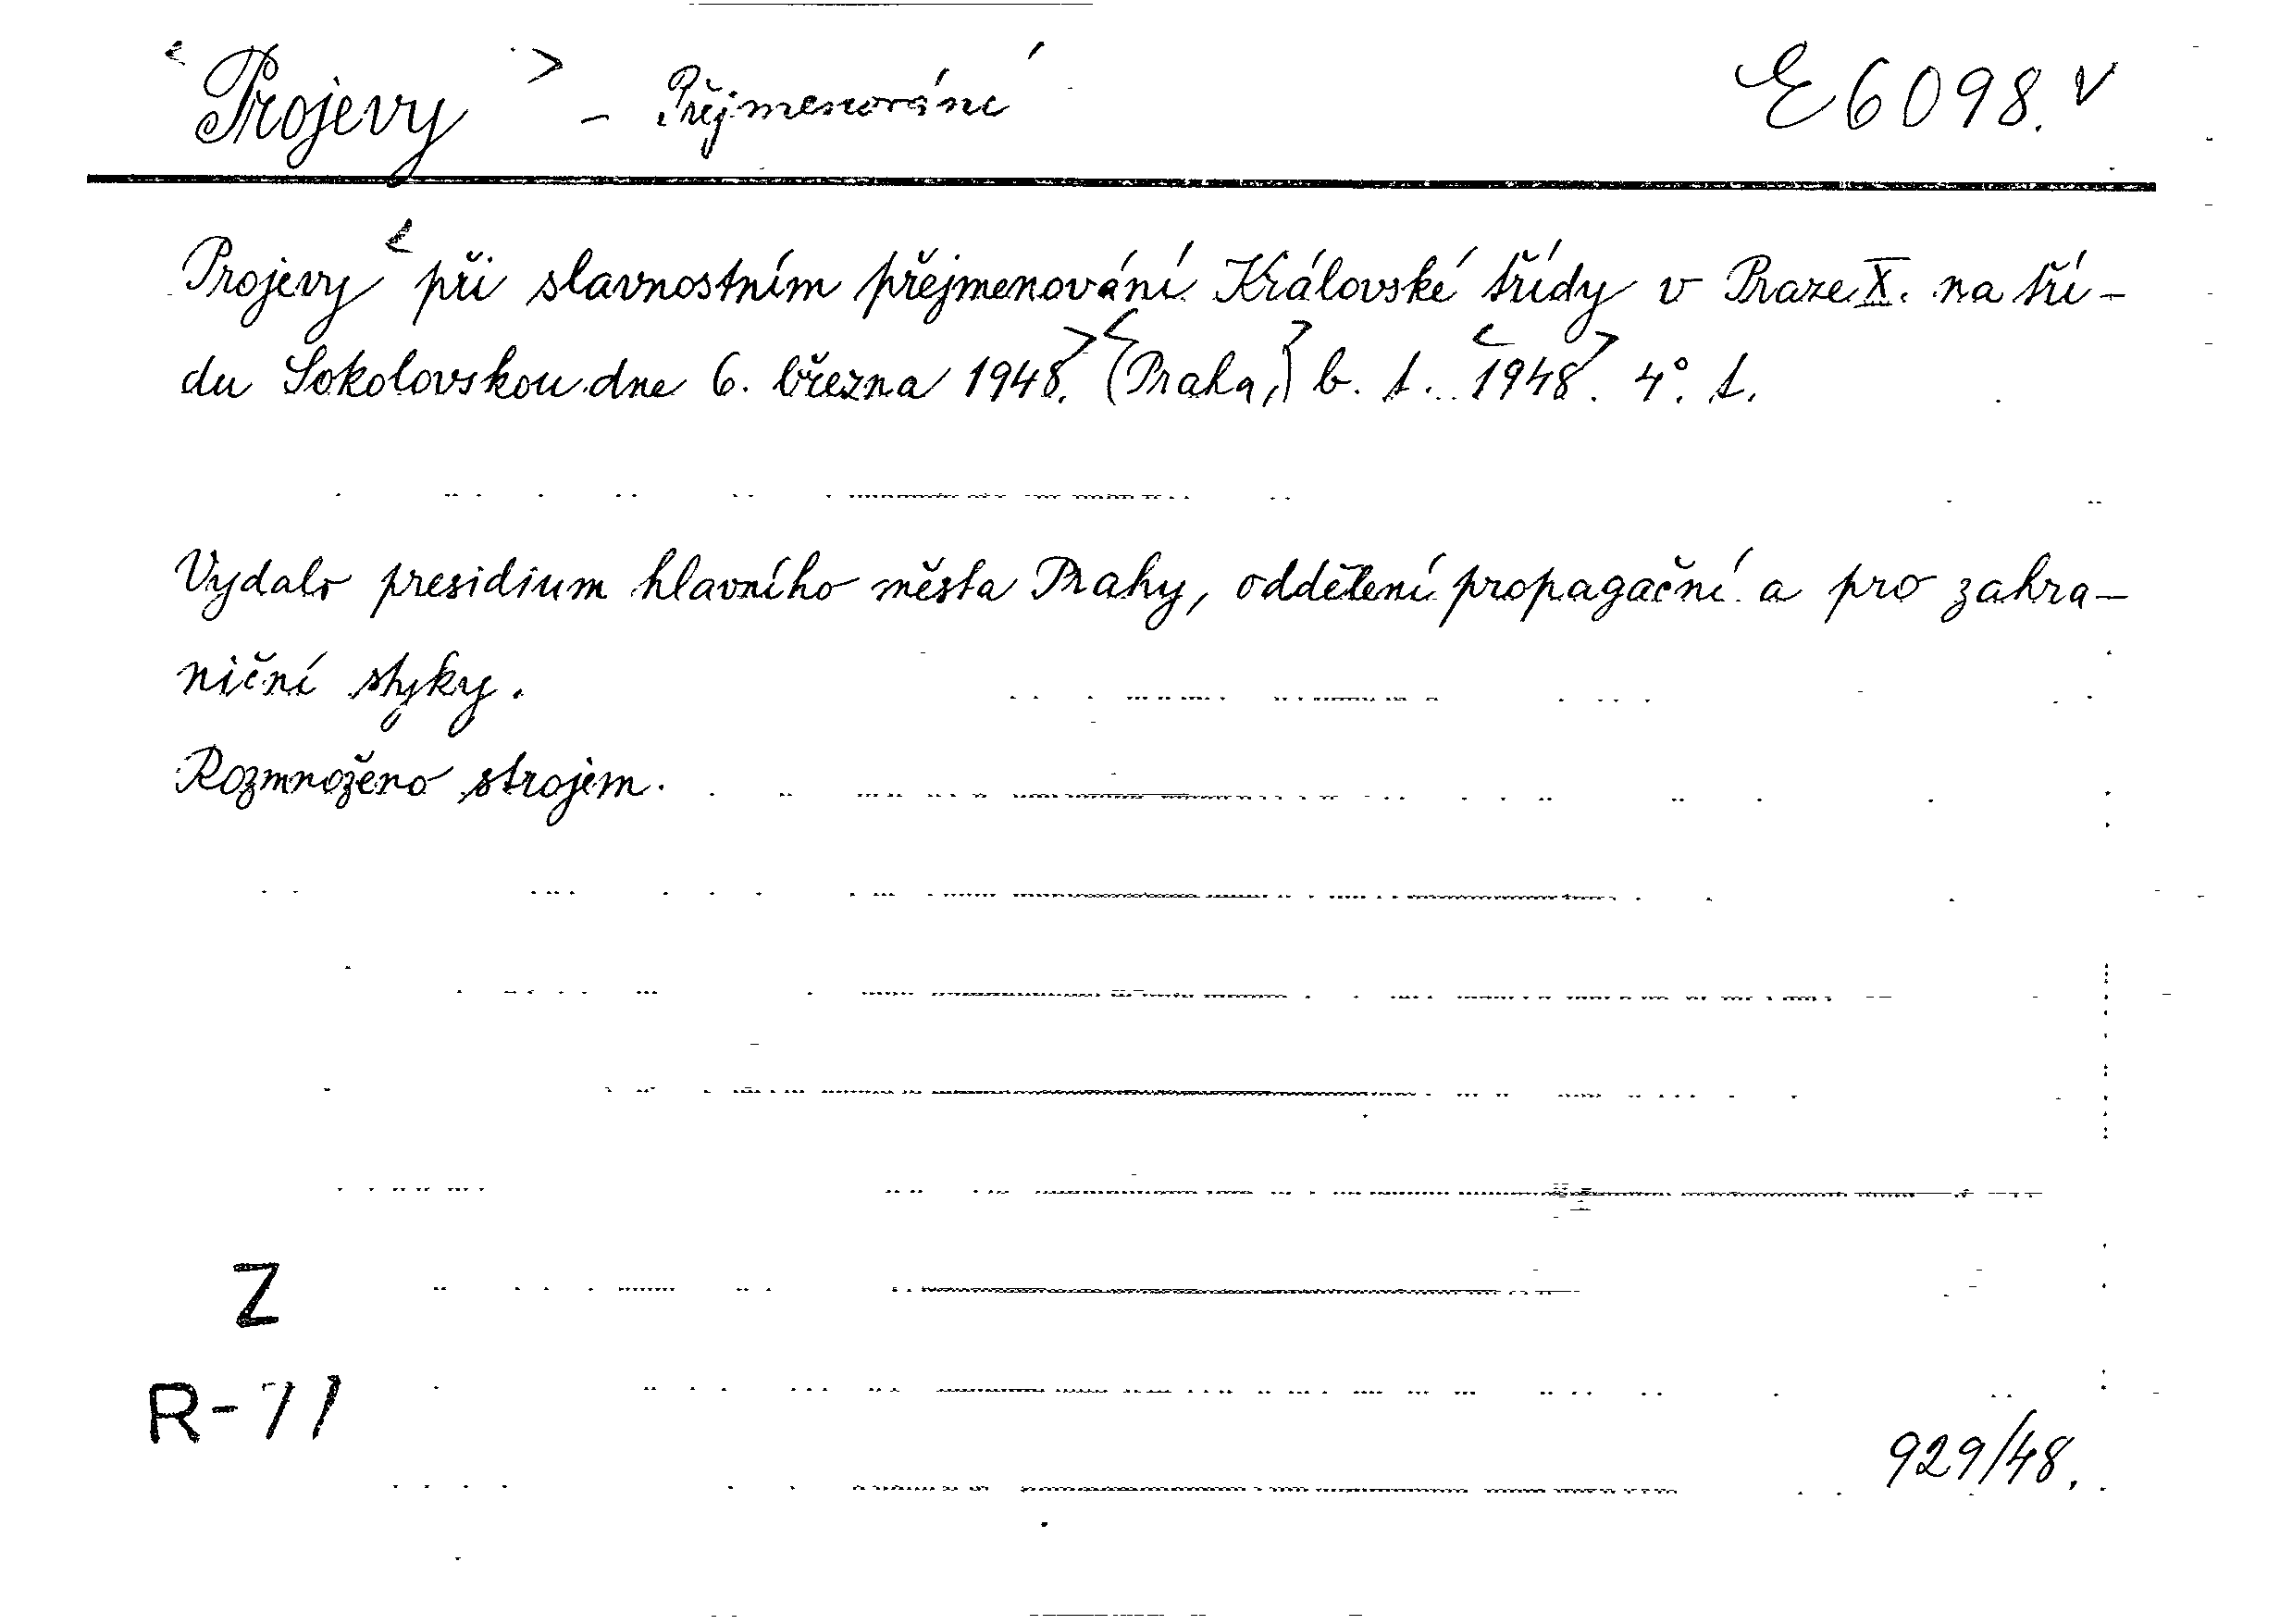 <Projevy> – Přejmenování E 6098. v
Projevy < při slavnostním přejmenování Královské třídy v Praze X. na tří-
du Sokolovskou dne 6. března 1948.> <(Praha,)> b. t. <1948>. 4°. t.
Vydalo presidium hlavního města Prahy, oddělení propagační a pro zahra-
niční styky.
Rozmnoženo strojem.
Z
R-71
929/48.